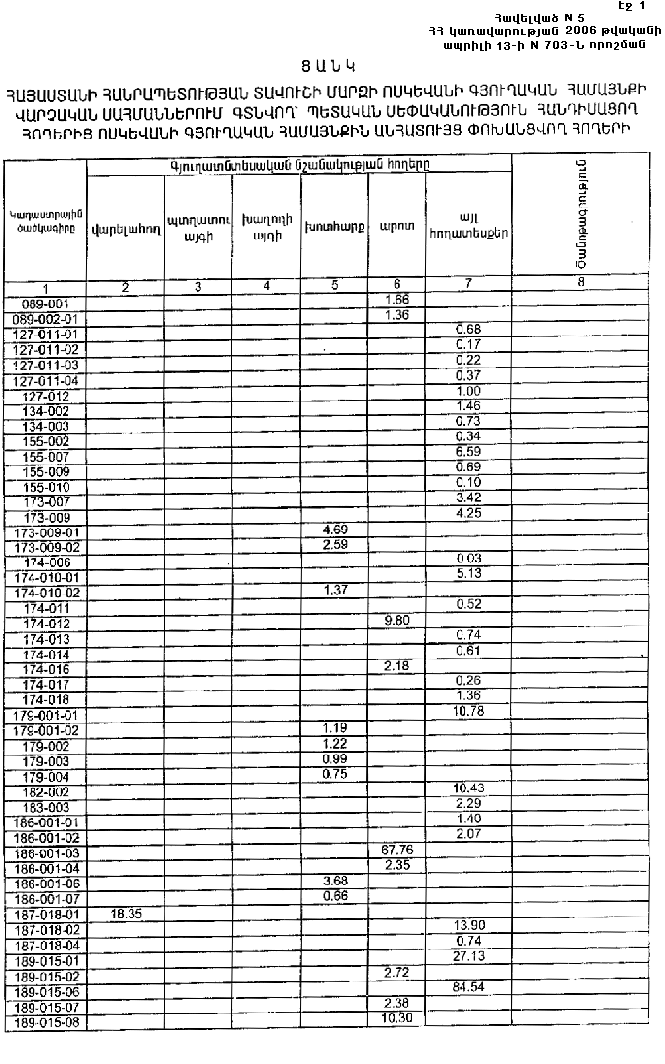 Էջ 1
Հավելված N 5
ՀՀ կառավարության 2006 թվականի
ապրիլի 13-ի N 703-Ն որոշման
ՑԱՆԿ
ՀԱՅԱՍՏԱՆԻ ՀԱՆՐԱՊԵՏՈՒԹՅԱՆ ՏԱՎՈՒՇԻ ՄԱՐԶԻ ՈՍԿԵՎԱՆԻ ԳՅՈՒՂԱԿԱՆ ՀԱՄԱՅՆՔԻ
ՎԱՐՉԱԿԱՆ ՍԱՀՄԱՆՆԵՐՈՒՄ ԳՏՆՎՈՂ՝ ՊԵՏԱԿԱՆ ՍԵՓԱԿԱՆՈՒԹՅՈՒՆ ՀԱՆԴԻՍԱՑՈՂ
ՀՈՂԵՐԻՑ ՈՍԿԵՎԱՆԻ ԳՅՈՒՂԱԿԱՆ ՀԱՄԱՅՆՔԻՆ ԱՆՀԱՏՈՒՅՑ ՓՈԽԱՆՑՎՈՂ ՀՈՂԵՐԻ
Կադաստրային
ծածկագիրը
Գյուղատնտեսական նշանակության հողերը
վարելահող
պտղատու
այգի
խաղողի
այգի
խոտհարք
արոտ
այլ
հողատեսքեր
Ծանոթագրություն
1 2 3 4 5 6 7 8
089-001 1.66
089-002-01 1.36
127-011-01 0.68
127-011-02 0.17
127-011-03 0.22
127-011-04 0.37
127-012 1.00
134-002 1.46
134-003 0.73
155-002 0.34
155-007 6.59
155-009 0.69
155-010 0.10
173-007 3.42
173-009 4.25
173-009-01 4.69
173-009-02 2.59
174-006 0.03
174-010-01 5.13
174-010-02 1.37
174-011 0.52
174-012 9.80
174-013 0.74
174-014 0.61
174-016 2.18
174-017 0.26
174-018 1.36
179-001-01 10.78
179-001-02 1.19
179-002 1.22
179-003 0.99
179-004 0.75
182-002 10.43
183-003 2.29
186-001-01 1.40
186-001-02 2.07
186-001-03 67.76
186-001-04 2.35
186-001-06 3.68
186-001-07 0.66
187-018-01 18.35
187-018-02 13.90
187-018-04 0.74
189-015-01 27.13
189-015-02 2.72
189-015-06 84.54
189-015-07 2.38
189-015-08 10.30